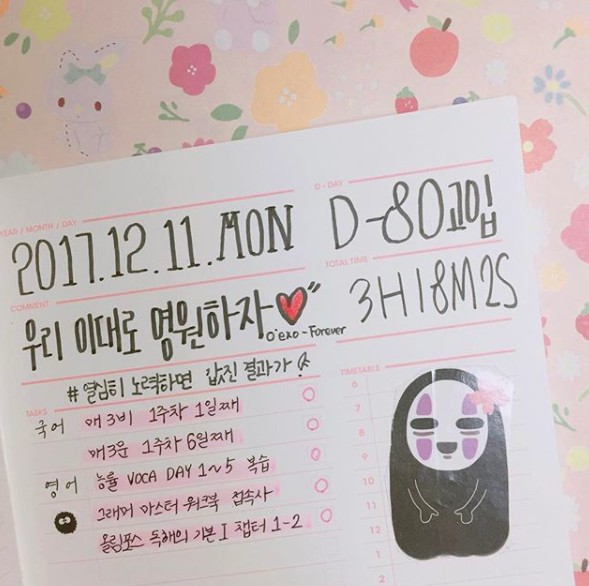 YEAR / MONTH / DAY
2017.12.11.MON
D-DAY
D-80 고입
COMMENT
우리 이대로 영원하자♥"
o'exo-Forever
TOTAL TIME
3H18M2S
#열심히 노력하면 값진 결과가
TASKS
국어 매3비 1주차 1일째 ○
매3문 1주차 6일째 ○
영어 능률 VOCA DAY 1~5 복습 ○
그래머 마스터 워크북 접속사 ○
올림포스 독해의 기본 I 챕터 1-2 ○
TIMETABLE
6
7
8
9
10
11
12
1
2